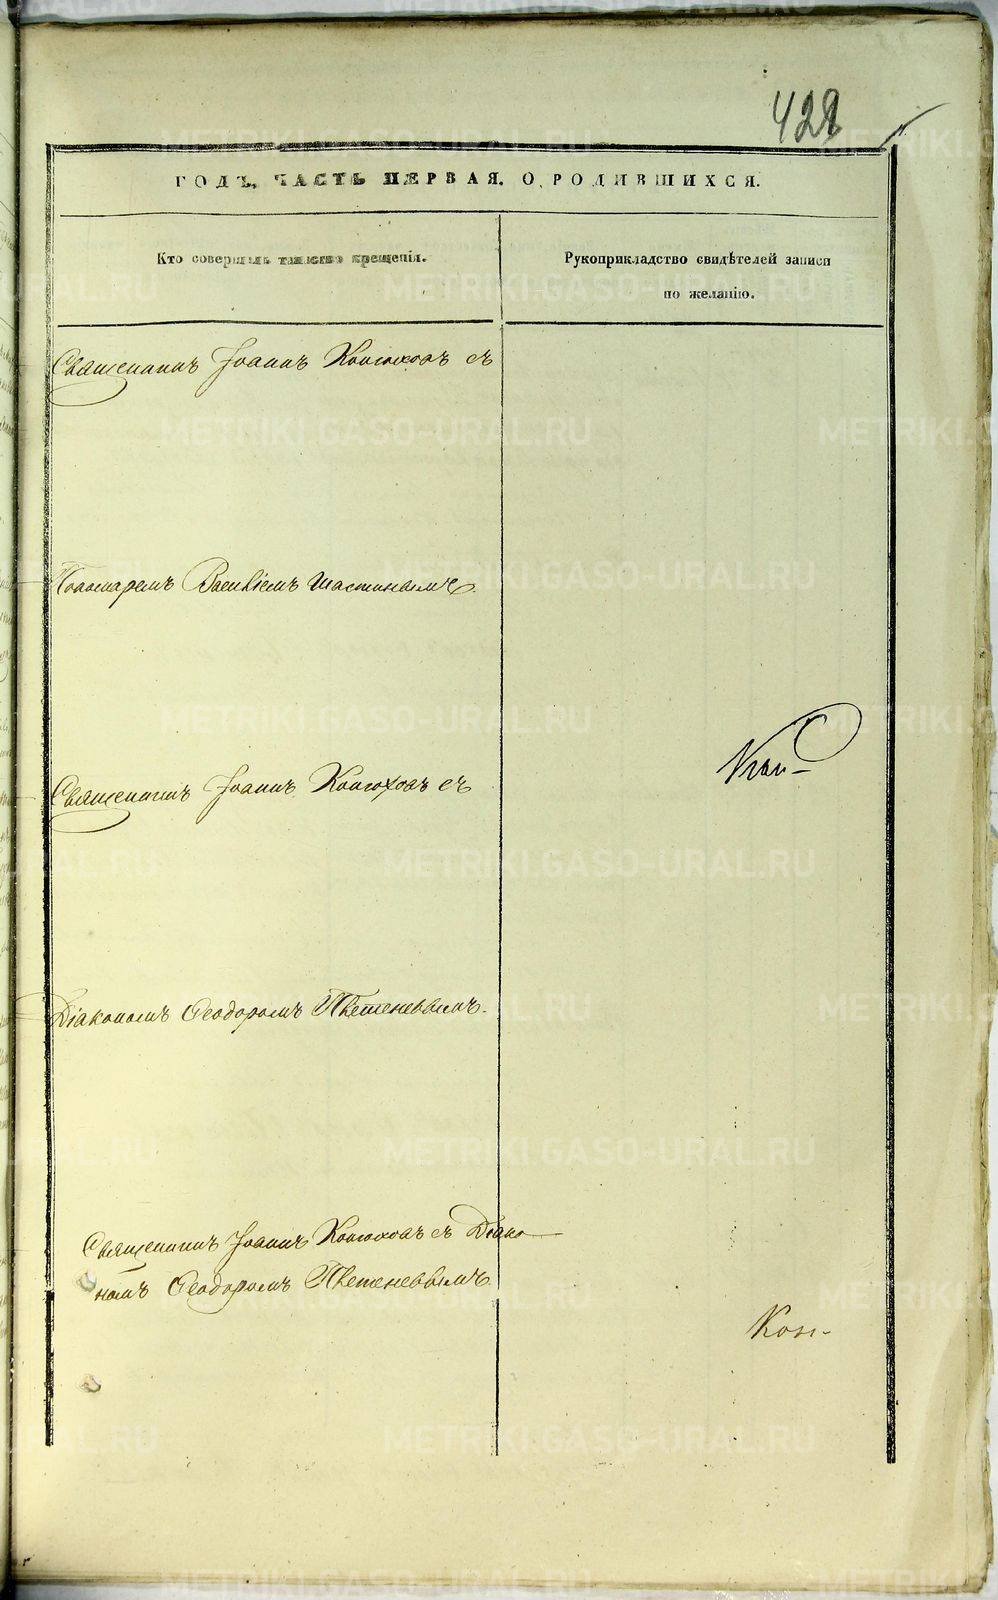 428
ГОДЪ, ЧАСТЬ ПЕРВАЯ. О РОДИВШИХСЯ.
Кто совершалъ таинство крещенія.
Рукоприкладство свидѣтелей записи
по желанію.
Священникъ Іоаннъ Конюховъ съ
Пономаремъ Василіемъ Шастинымъ
Священникъ Іоаннъ Конюховъ съ
Діакономъ Ѳеодоромъ
Священникъ Іоаннъ Конюховъ съ Діако
номъ Ѳеодоромъ
METRIKI.GASO-URAL.RU